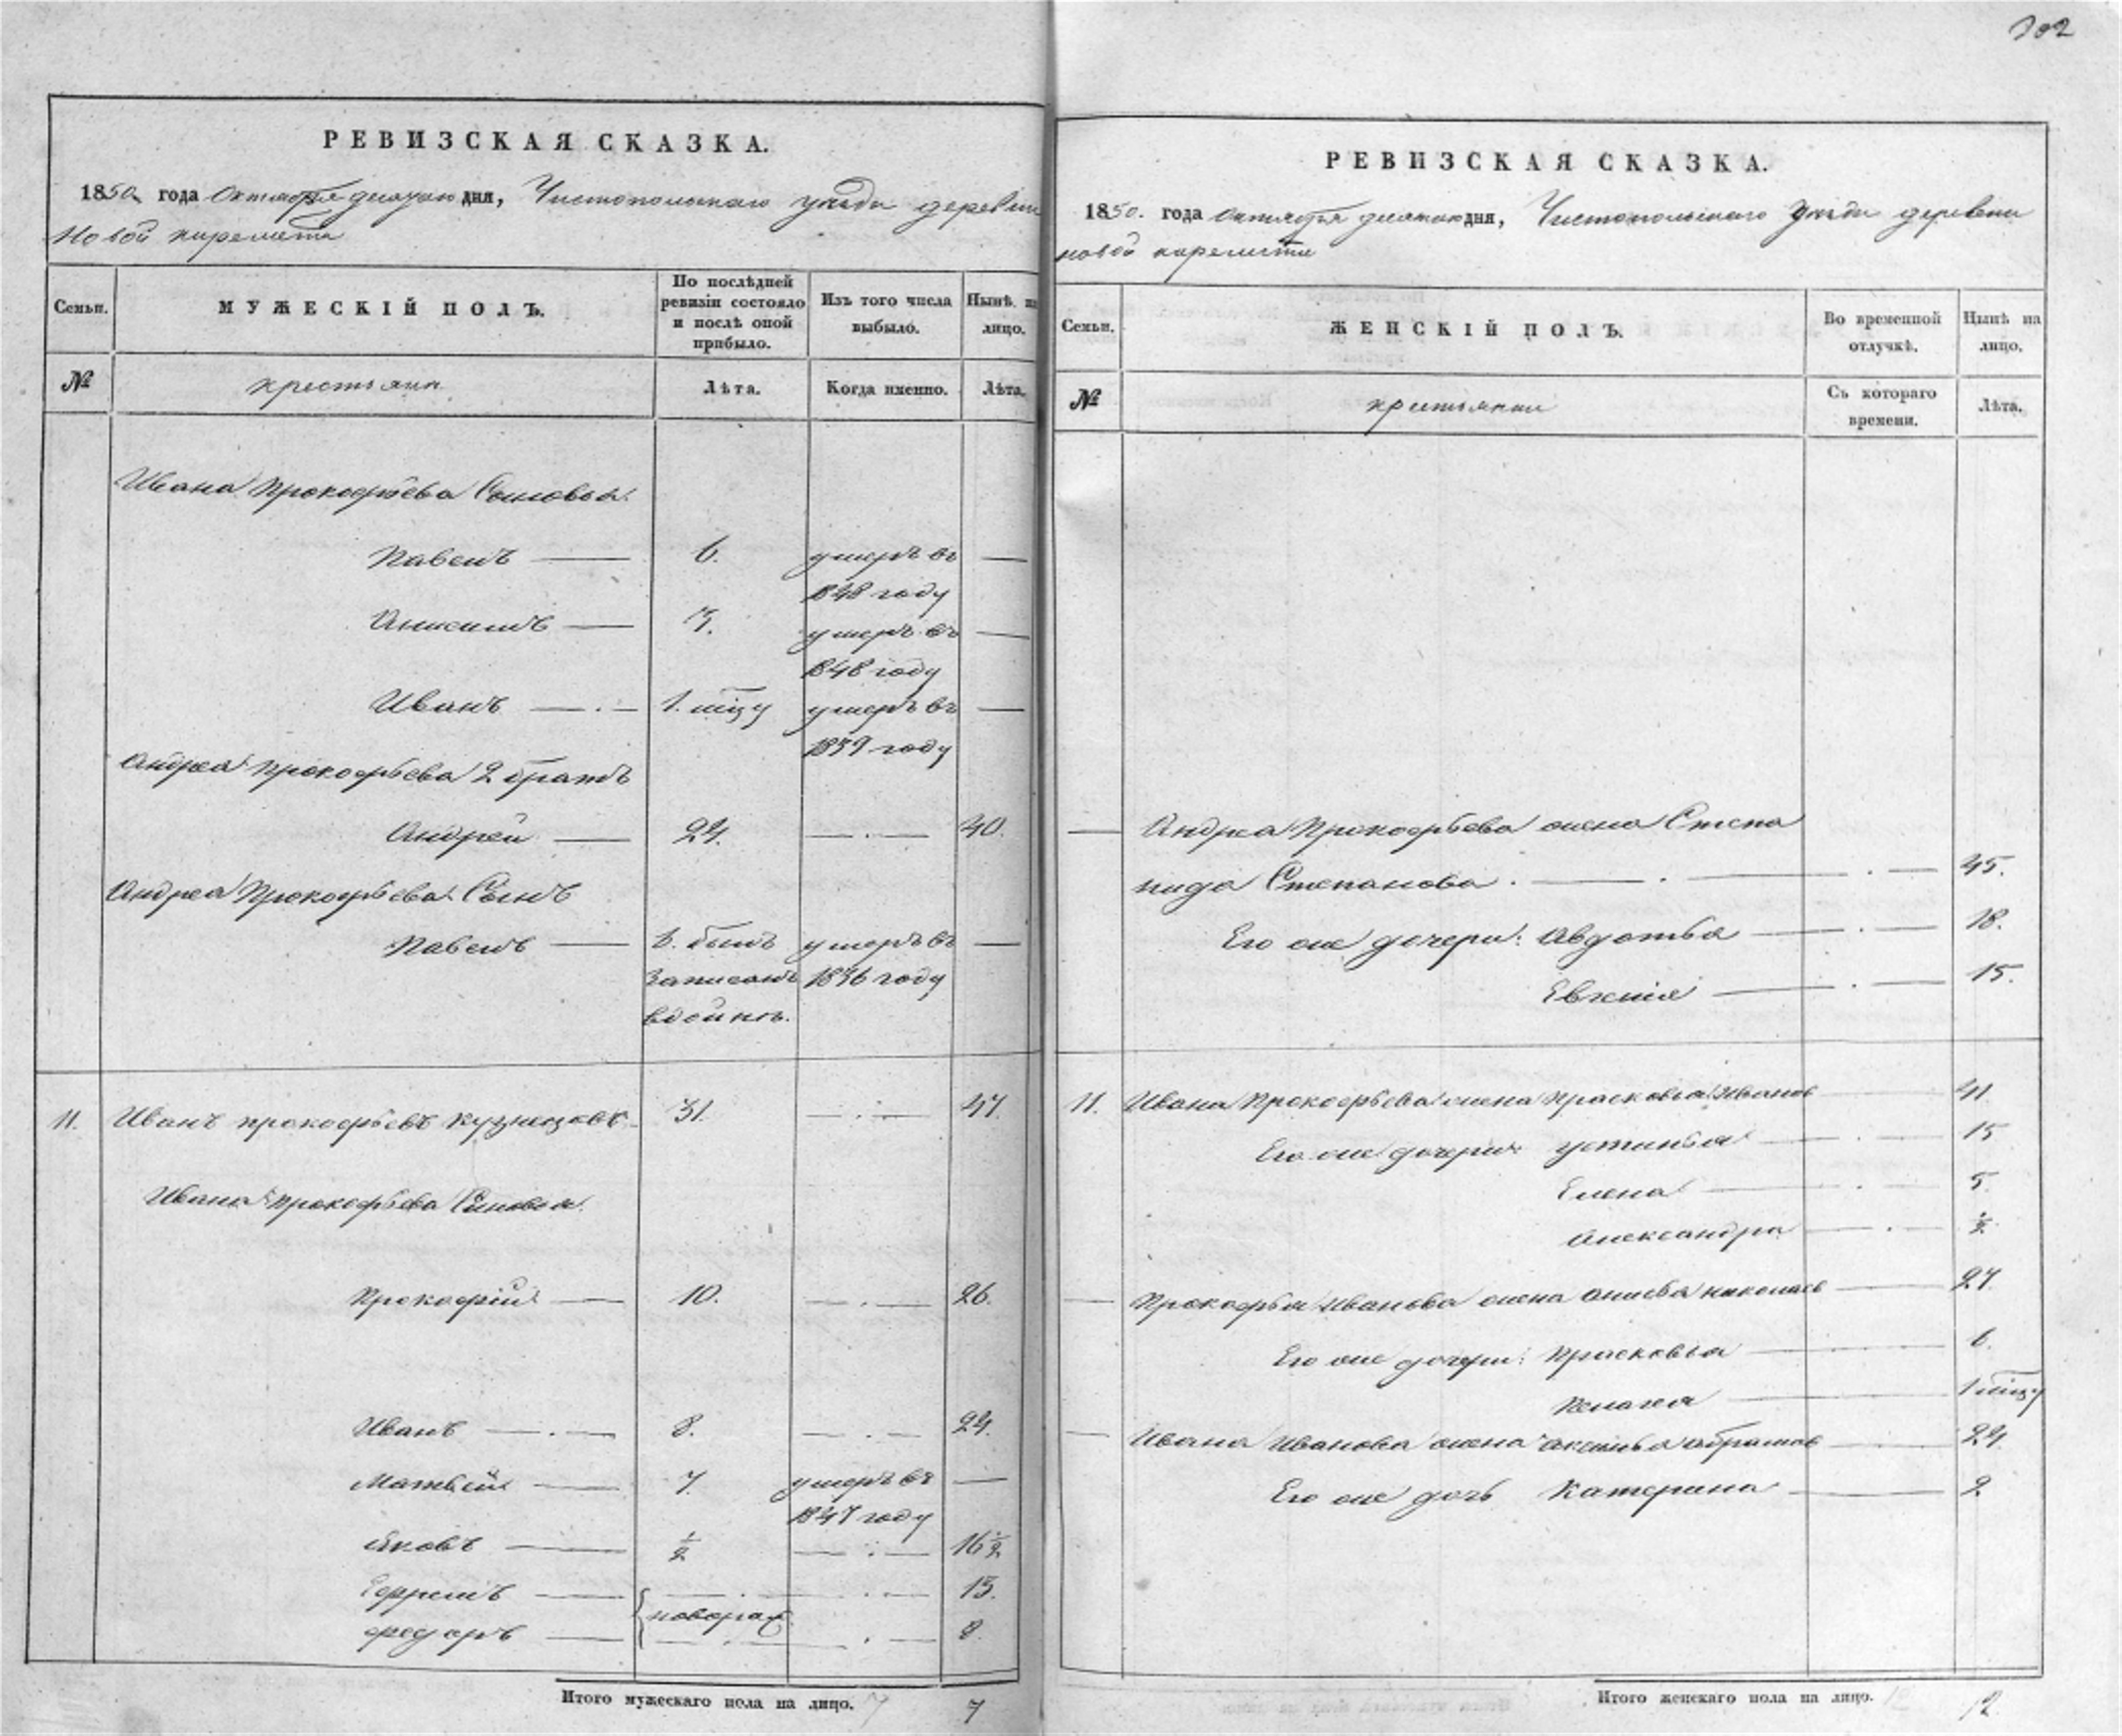 302
РЕВИЗСКАЯ СКАЗКА.
1850 года Октября дня, Чистопольскаго уѣзда деревни
Новой киремети
Семьи.
МУЖЕСКІЙ ПОЛЪ.
По послѣдней
ревизіи состояло
и послѣ оной
прибыло.
Изъ того числа
выбыло.
Нынѣ на
лицо.
№
крестьяне
Лѣта.
Когда именно.
Лѣта.
Ивана Прокофьева Сыновья.
Павелъ — 6. умеръ въ —
1848 году
Анисимъ — 3. умеръ въ —
1848 году
Иванъ — . — 1. мѣцу умеръ въ —
1839 году
Андрея Прокофьева 2 братъ
Андрей — 24. — . — 40.
Андрея Прокофьева Сынъ
Павелъ — 6. былъ умеръ въ —
Записанъ 1836 году
вдойнѣ.
11. Иванъ прокофьевъ Кузнецовъ 31. — . — 47.
Ивана прокофьева Сыновья.
Прокофій — 10. — . — 26.
Иванъ — . — 8. — . — 24.
Матвей — 7. умеръ въ —
1847 году
Яковъ — ½ — . — 16½
Ефремъ — — . — 15.
новорож
федоръ — — . — 8.
Итого мужескаго пола на лицо. 7 7
РЕВИЗСКАЯ СКАЗКА.
1850. года Октября дня, Чистопольскаго Уѣзда деревни
новой киремети
Семьи.
ЖЕНСКІЙ ПОЛЪ.
Во временной
отлучкѣ.
Нынѣ на
лицо.
№
крестьянки
Съ котораго
времени.
Лѣта.
— Андрея Прокофьева жена Степа
нида Степанова . — . — . — 45.
Его же дочери: Авдотья — . — 18.
Евгенія — . — 15.
11. Ивана Прокофьева жена Прасковья Иванов — 41
Его же дочери: устинья — . — 15
Елена — . — 5.
Александра — . — ½
— Прокофья Иванова жена — 27.
Его же дочери: Прасковья — 6.
Пелагея — 1 мѣцу
— Ивана Иванова жена — 24.
Его же дочь Катерина — 2
Итого женскаго пола на лицо. 12 12.